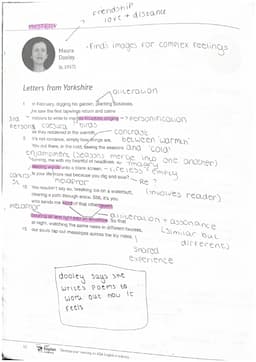 friendship
love + distance
Maura
Dooley
(b.1957)
- finds images for complex feelings
Letters from Yorkshire
alliteration
In February, digging his garden, planting potatoes,
he saw the first lapwings return and came
indoors to write to me, his knuckles singing
→ personification
3rd
person
caesura
birds
as they reddened in the warmth.
contrast
between 'warmth'
It's not romance, simply how things are.
You out there, in the cold, seeing the seasons
and 'cold'
enjambment (seasons merge into one another)
turning, me with my heartful of headlines
→ imagery
feeding words onto a blank screen.
- lifeless + empty
Is your life more real because you dig and sow?
- RQ ?
metaphor
(involves reader)
You wouldn't say so, breaking ice on a waterbutt,
clearing a path through snow. Still, it's you
who sends me word of that other world
metaphor
pouring air and light into an envelope. So that
alliteration + assonance
at night, watching the same news in different houses,
(similar but
different)
our souls tap out messages across the icy miles.
shared
experience
dooley says she
writes poems to
work out how it
feels